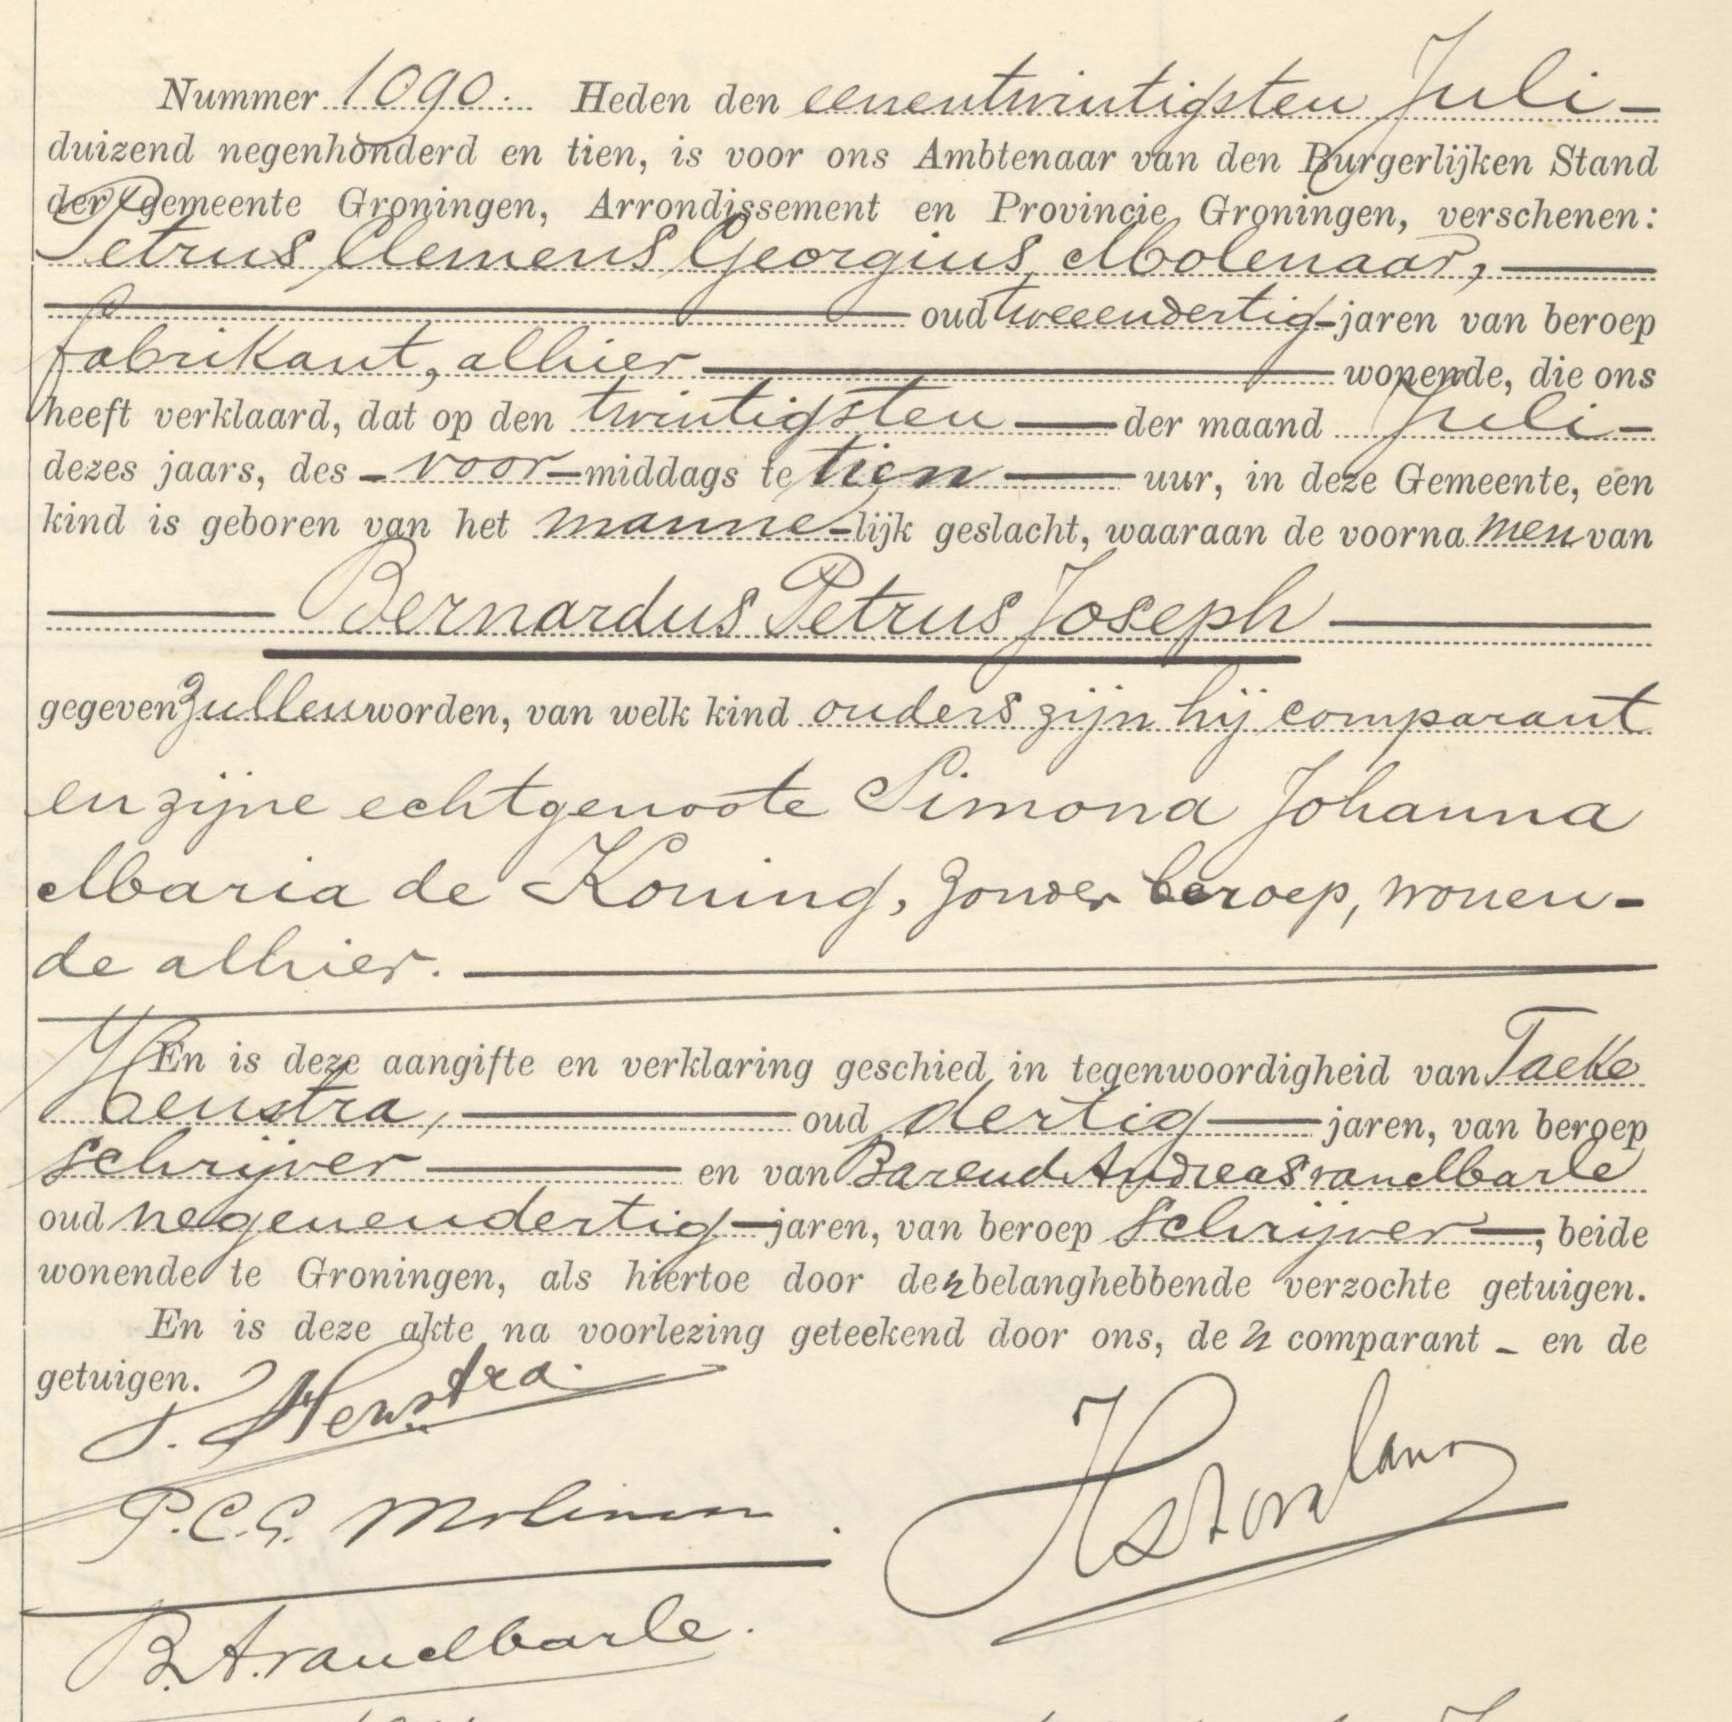 Nummer 1090. Heden den eenentwintigsten Juli
duizend negenhonderd en tien, is voor ons Ambtenaar van den Burgerlijken Stand
der gemeente Groningen, Arrondissement en Provincie Groningen, verschenen:
Petrus Clemens Georgius Molenaar,
oud tweeendertig jaren van beroep
fabrikant, alhier wonende, die ons
heeft verklaard, dat op den twintigsten der maand Juli
dezes jaars, des voor-middags te tien uur, in deze Gemeente, een
kind is geboren van het manne-lijk geslacht, waaraan de voornamen van
Bernardus Petrus Joseph
gegeven zullen worden, van welk kind ouders zijn hij comparant
en zijne echtgenoote Simona Johanna
Maria de Koning, zonder beroep, wonen-
de alhier.
En is deze aangifte en verklaring geschied in tegenwoordigheid van Taeke
Henstra, oud dertig jaren, van beroep
schrijver en van Barend Andreas van Marle
oud negenendertig jaren, van beroep schrijver, beide
wonende te Groningen, als hiertoe door den belanghebbende verzochte getuigen.
En is deze akte na voorlezing geteekend door ons, den comparant en de
getuigen.
T. Henstra.
P.C.G. Molenaar
B. A. van Marle.